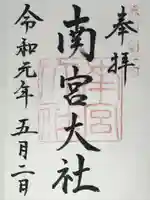 奉拝
南宮大社
令和元年五月二日